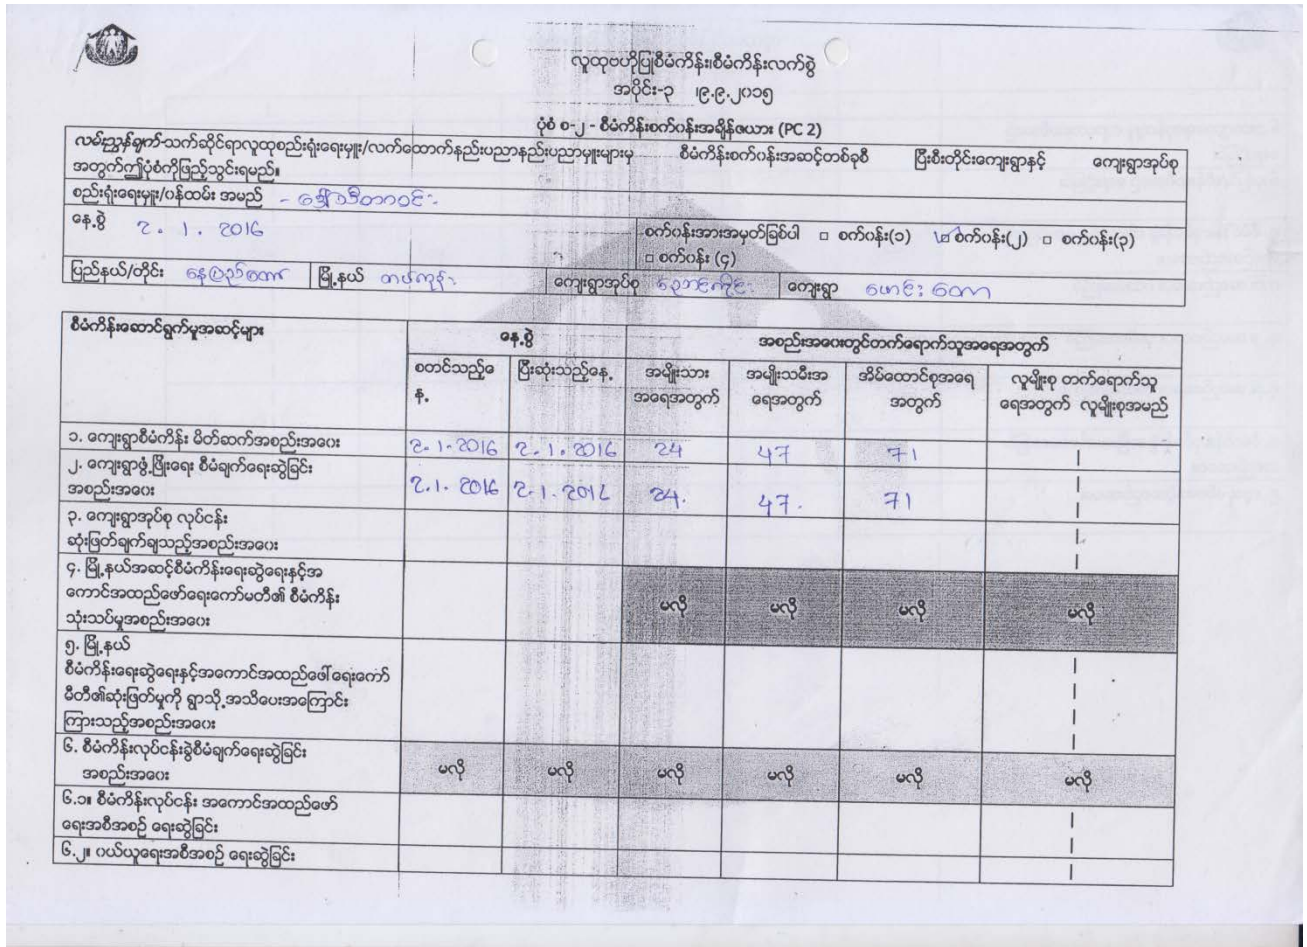 လူထုဗဟိုပြုစီမံကိန်း၊စီမံကိန်းလက်စွဲ
အပိုင်း-၃ ၊၉.၉.၂၀၁၅
ပုံစံ စ-၂ - စီမံကိန်းစက်ဝန်းအချိန်ဇယား (PC 2)
လမ်းညွှန်ချက်-သက်ဆိုင်ရာလူထုစည်းရုံးရေးမှူး/လက်ထောက်နည်းပညာနည်းပညာမှူးများမှ စီမံကိန်းစက်ဝန်းအဆင့်တစ်ခုစီ ပြီးစီးတိုင်းကျေးရွာနှင့် ကျေးရွာအုပ်စု
အတွက်ဤပုံစံကိုဖြည့်သွင်းရမည်။
စည်းရုံးရေးမှူး/ဝန်ထမ်း အမည် -
နေ့စွဲ 2. 1. 2016 စက်ဝန်းအားအမှတ်ခြစ်ပါ □ စက်ဝန်း(၁) ☑ စက်ဝန်း(၂) □ စက်ဝန်း(၃)
□ စက်ဝန်း (၄)
ပြည်နယ်/တိုင်း နေပြည်တော် မြို့နယ် တပ်ကုန်း ကျေးရွာအုပ်စု ကျေးရွာ
စီမံကိန်းဆောင်ရွက်မှုအဆင့်များ နေ့စွဲ အစည်းအဝေးတွင်တက်ရောက်သူအရေအတွက်
စတင်သည့်နေ့ ပြီးဆုံးသည့်နေ့ အမျိုးသား အရေအတွက် အမျိုးသမီးအရေအတွက် အိမ်ထောင်စုအရေအတွက် လူမျိုးစု တက်ရောက်သူ ရေအတွက် လူမျိုးစုအမည်
၁. ကျေးရွာစီမံကိန်း မိတ်ဆက်အစည်းအဝေး 2. 1. 2016 2. 1. 2016 24 47 71
၂. ကျေးရွာဖွံ့ဖြိုးရေး စီမံချက်ရေးဆွဲခြင်း
အစည်းအဝေး 2. 1. 2016 2. 1. 2016 24. 47. 71
၃. ကျေးရွာအုပ်စု လုပ်ငန်း
ဆုံးဖြတ်ချက်ချသည့်အစည်းအဝေး
၄. မြို့နယ်အဆင့်စီမံကိန်းရေးဆွဲရေးနှင့်အ
ကောင်အထည်ဖော်ရေးကော်မတီ၏ စီမံကိန်း မလို မလို မလို မလို
သုံးသပ်မှုအစည်းအဝေး
၅. မြို့နယ်
စီမံကိန်းရေးဆွဲရေးနှင့်အကောင်အထည်ဖေါ်ရေးကော်
မီတီ၏ဆုံးဖြတ်မှုကို ရွာသို့အသိပေးအကြောင်း
ကြားသည့်အစည်းအဝေး
၆. စီမံကိန်းလုပ်ငန်းခွဲစီမံချက်ရေးဆွဲခြင်း
အစည်းအဝေး မလို မလို မလို မလို မလို မလို
၆.၁။ စီမံကိန်းလုပ်ငန်း အကောင်အထည်ဖော်
ရေးအစီအစဉ် ရေးဆွဲခြင်း
၆.၂။ ဝယ်ယူရေးအစီအစဉ် ရေးဆွဲခြင်း